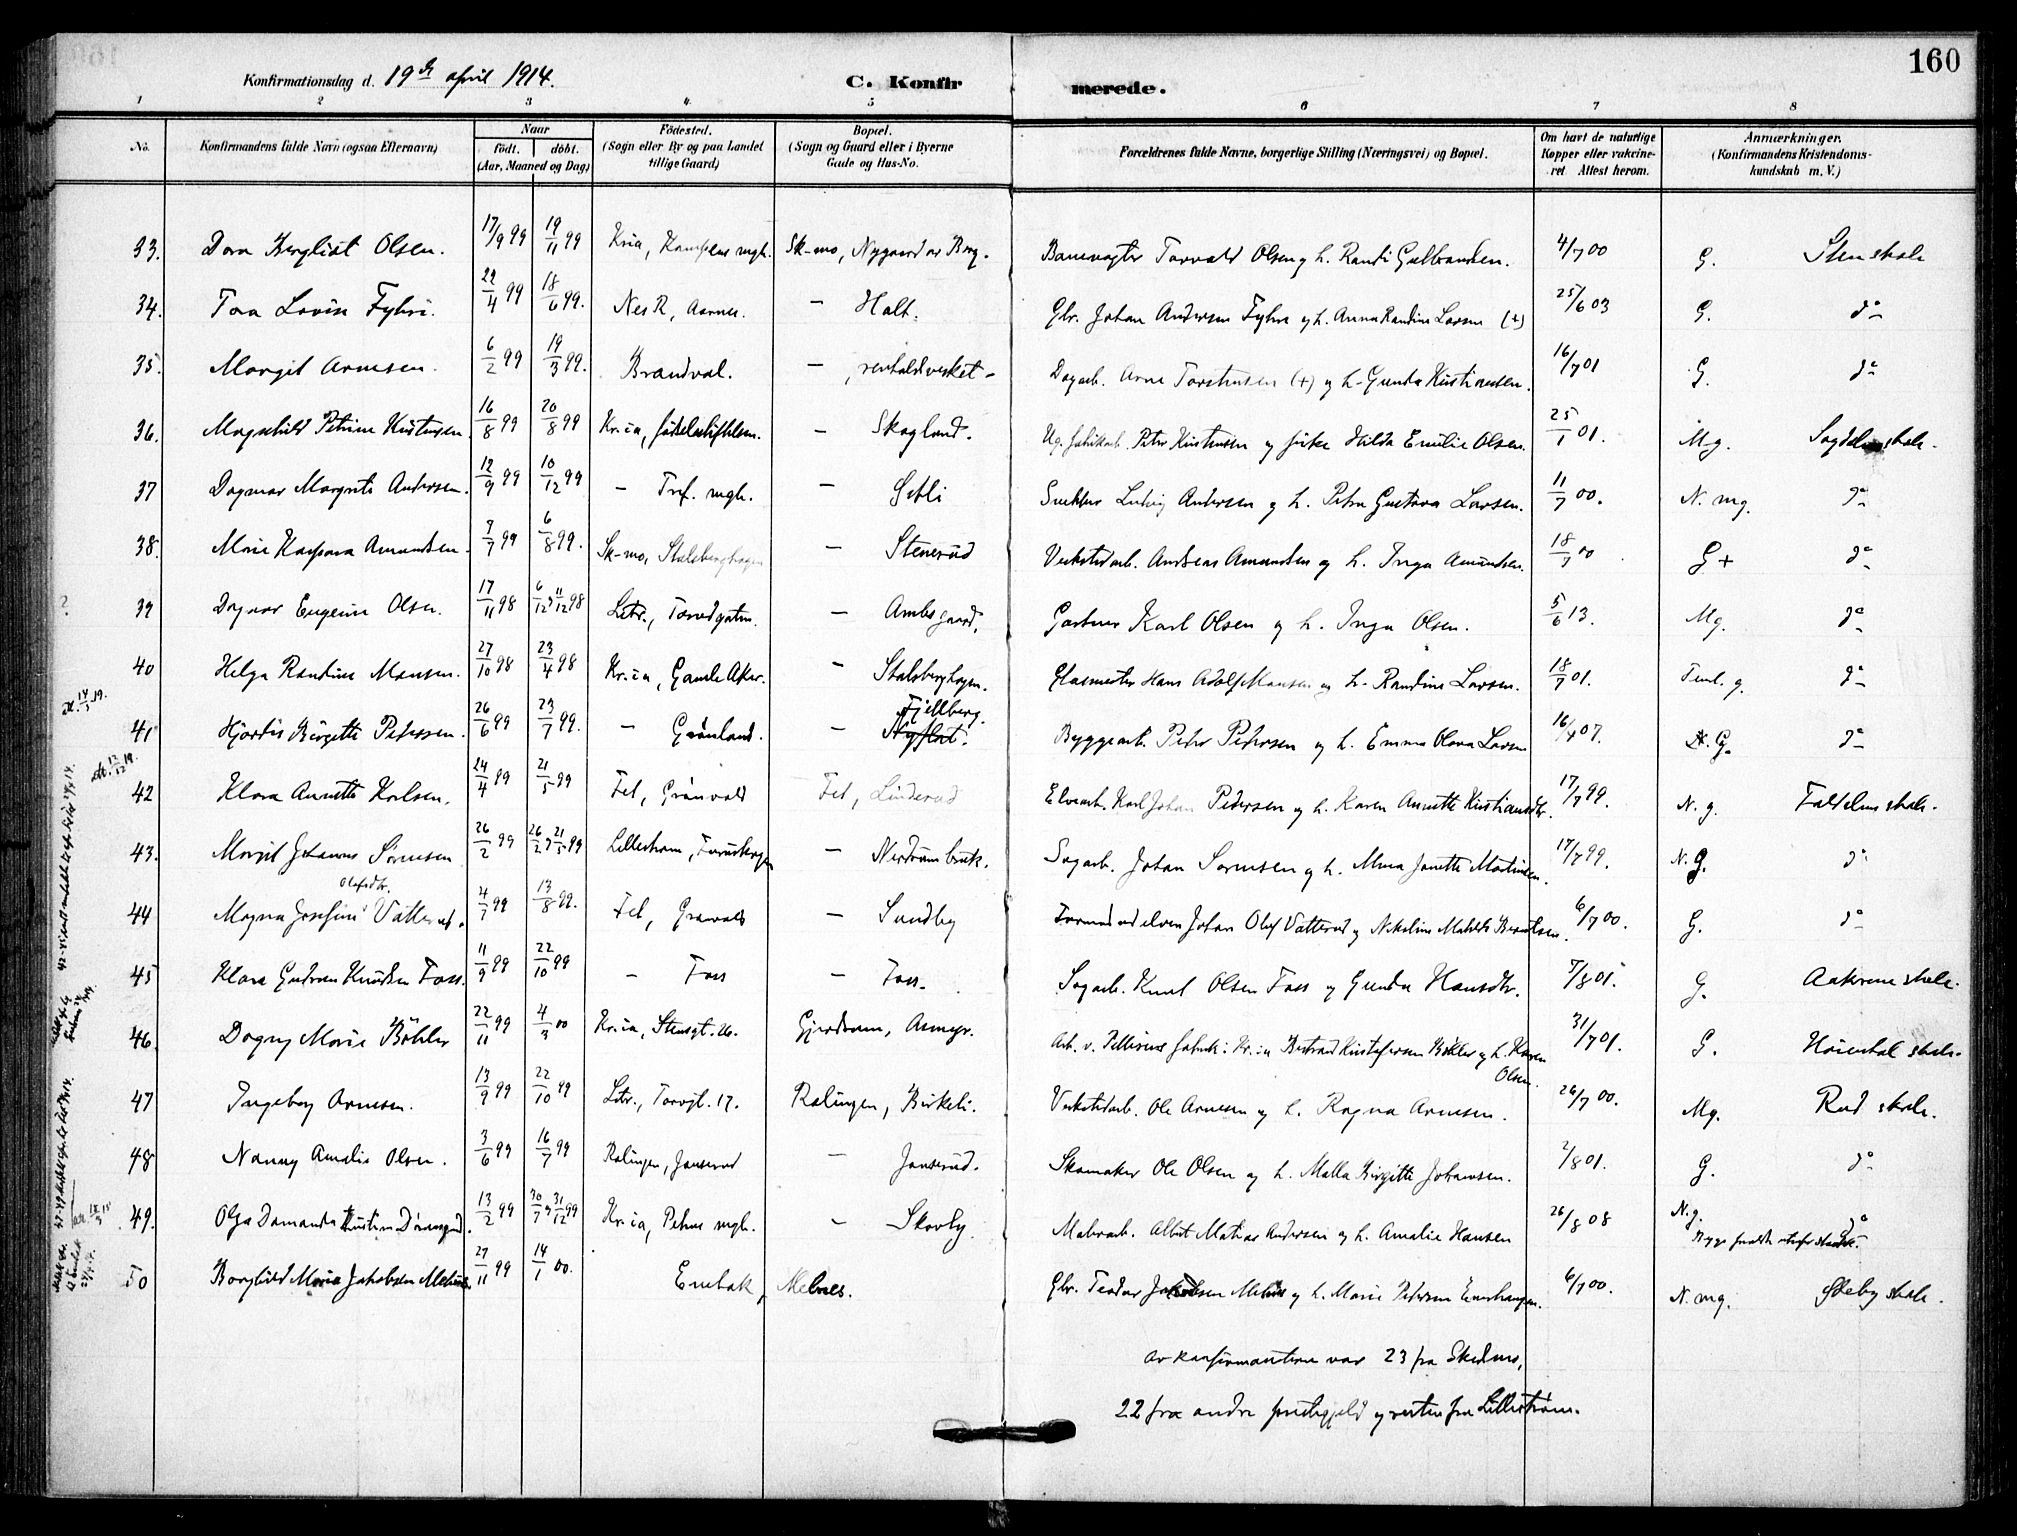 160
Konfirmationsdag d. 19de april 1914. C. Konfirmerede.
1 2 3 4 5 6 7 8
No. Konfirmandens fulde Navn (ogsaa Efternavn) Naar født. døbt. (Aar, Maaned og Dag) Fødested. (Sogn eller By og paa Landet tillige Gaard) Bopæl. (Sogn og Gaard eller i Byerne Gade og Hus-No. Forældrenes fulde Navne, borgerlige Stilling (Næringsvei) og Bopæl. Om havt de naturlige Kopper eller vakcineret Attest herom. Anmærkninger. (Konfirmandens Kristendomskundskab m. V.)
33. Dora Bergliot Olsen. 17/9 99 19/11 99 Kria, Kampens mgh. Sk-mo, Nygaard Banevogter Torvald Olsen og h. Randi Gulbrandsen. 4/7 00 G. Sten skole
34. Tora Lovise Fyhri. 22/4 99 18/6 99. Nes R, Aarnes. — Holt. Gbr. Johan Andersen Fyhri og h. Anna Randine Larsen (+) 25/6 03 G. do
35. Margit Arnesen. 6/2 99 19/3 99. Brandval. — , renholdsverket - Dagarb. Arne Torstensen (+) og h. Gunda Kristiansen. 16/7 01 G. do
36. Magnhild Petrine Kristensen. 16/8 99 20/8 99 Kr.ia, fødselsstiftelsen. — Skogland. Ug. fabrikarb. Peter Kristensen og pike Hilda Emilie Olsen. 25/1 01. Mg. Sagdalens skole.
37 Dagmar Margrete Andersen. 12/9 99 10/12 99 — Tref. mgh. — Sætli Snekker Ludvig Andersen og h. Petra Gustava Larsen. 11/7 00. N. mg. do
38. Marie Kaspara Amundsen. 7/7 99 6/8 99. Sk-mo, Stalsberghagen — Stenerud Verkstedarb. Andreas Amundsen og h. Inga Amundsen. 18/7 00 G + do
39 Dagmar Eugenie Olsen. 17/11 98 6/12 11/12 98 Lstr., Torvdgaten. — Ambs gaard. Gartner Karl Olsen og h. Inga Olsen. 5/6 13. Mg. do
40 Helga Randine Monsen. 27/10 98 23/4 98 Kr.ia, Gamle Aker. — Stalsberghagen. Glasmester Hans Adolf Monsen og h. Randine Larsen. 18/7 01. Teml. g. do
41 Hjørdis Birgitte Pedersen. 26/6 99 23/7 99. — Grønland. — Nyflot. Fjellberg. Byggearb. Peder Pedersen og h. Emma Olava Larsen 16/4 07. G. do
42 Klara Annette Karlsen. 24/4 99 21/5 99 Fet, Grønvold Fet, Linderud Elvearb. Karl Johan Pedersen og h. Karen Annette Kristiansdtr. 17/7 99. N. g. Faldalens skole.
43. Margit Johanne Sørensen 26/2 99 26/2 21/5 99 Lillestrøm, Furuskogen — Nerdrum bruk. Sagarb. Johan Sørensen og h. Alma Janette Martinsen. 17/7 99. N. g. do
44 Magna Josefine Olafsdtr. Vatterud. 4/7 99 13/8 99. Fet, Grønvold — Sundby Formand ved elven Johan Olaf Vatterud og Nikoline Matilde Berntsen. 6/7 00. G. do
45 Klara Gudrun Knudsen Foss. 11/9 99 22/10 99 — Foss — Foss. Sagarb. Knut Olsen Foss og Gunda Hansdtr. 7/8 01. G. Aakrene skole.
46. Dagny Marie Bøhler 22/11 99 4/3 00 Kr.ia, Stensgt. 26. Gjerdrum, Asmyr. Arb. v. fabrik i Kr.ia Bertrad Kristofersen Bøhler og h. Karen Olsen. 31/7 01. G. skole.
47 Ingeborg Arnesen. 13/9 99 22/10 99 Lstr., Torvgt. 17. Rælingen, Birkeli. Verkstedarb. Ole Arnesen og h. Ragna Arnesen. 26/7 00. Mg. Rud skole.
48 Nanny Amalie Olsen. 3/6 99 16/7 99 Rælingen, Jonserud — Jonserud. Skomaker Ole Olsen og h. Malla Birgitte Johansen. 2/8 01. G. do
49. Olga Damanda Kristine 13/2 99 30/7 31/12 99 Kr.ia, Petrus mgh. — Skovly. Malerarb. Albert Matias Andersen og h. Amalie Hansen 26/8 08 N. g. do
50 Borghild Marie Jakobsen Melnes 27/11 99 14/1 00. Enebak, Melnes. Gbr. Teodor Jakobsen Melnes og h. Marie Pedersen 6/7 00. N. mg. Øieby skole.
Av konfirmantene var 23 fra Skedsmo,
22 fra andre prestegjeld og resten fra Lillestrøm.